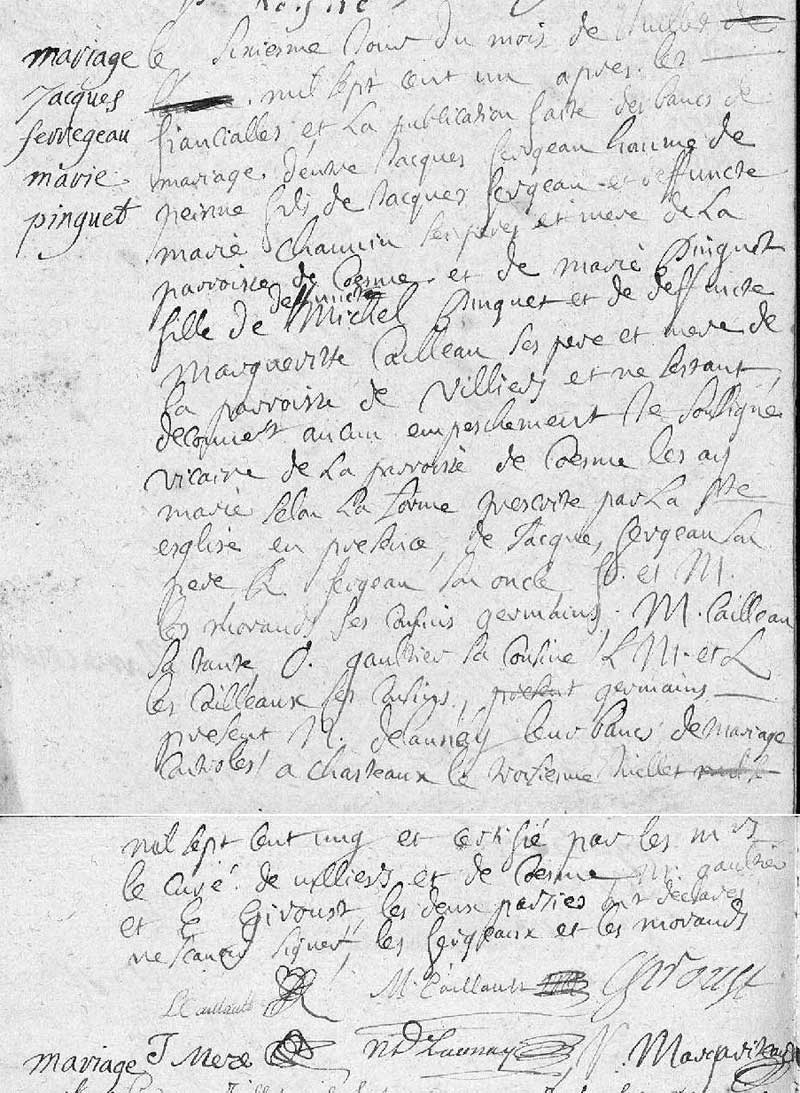 mariage
Jacques
ferregeau
marie
pinguet
le sixiesme Jour du mois de Juillet de
mil sept cent un apres les
fiancialles et la publication faite des bancs de
mariage d'entre Jacques fergeau homme de
peinne fils de Jacques fergeau et deffuncte
marie chauvin ses pere et mere de la
parroisse de Coesme et de marie Pinguet
deffunct
fille de Michel Pinguet et de deffuncte
Margueritte Cailleau ses pere et mere de
la parroisse de Villiers et ne sestant
decouvert aucun empeschement Je soussigné
vicaire de la parroisse de Coesme les ay
marié selon la forme prescrite par la Ste
esglise en presence de Jacque fergeau son
pere fergeau son oncle et M.
les morauds ses cousins germains, M. Cailleau
sa tante, gaultier sa cousine L M. et L
les Cailleaux ses cousins, present germains
present N. delaunay leur bancs de mariage
Controles a chasteaux le troisiesme Juillet
mil sept cent ung et certifié par les mrs
le curé de villiers et de Coesme M. gaultier
et Giroust, les deux parties ont declares
ne scavoir signer, les fergeaux et les morauds
L Caillault M. Caillault Giroust
mariage J Mere N. De Launay